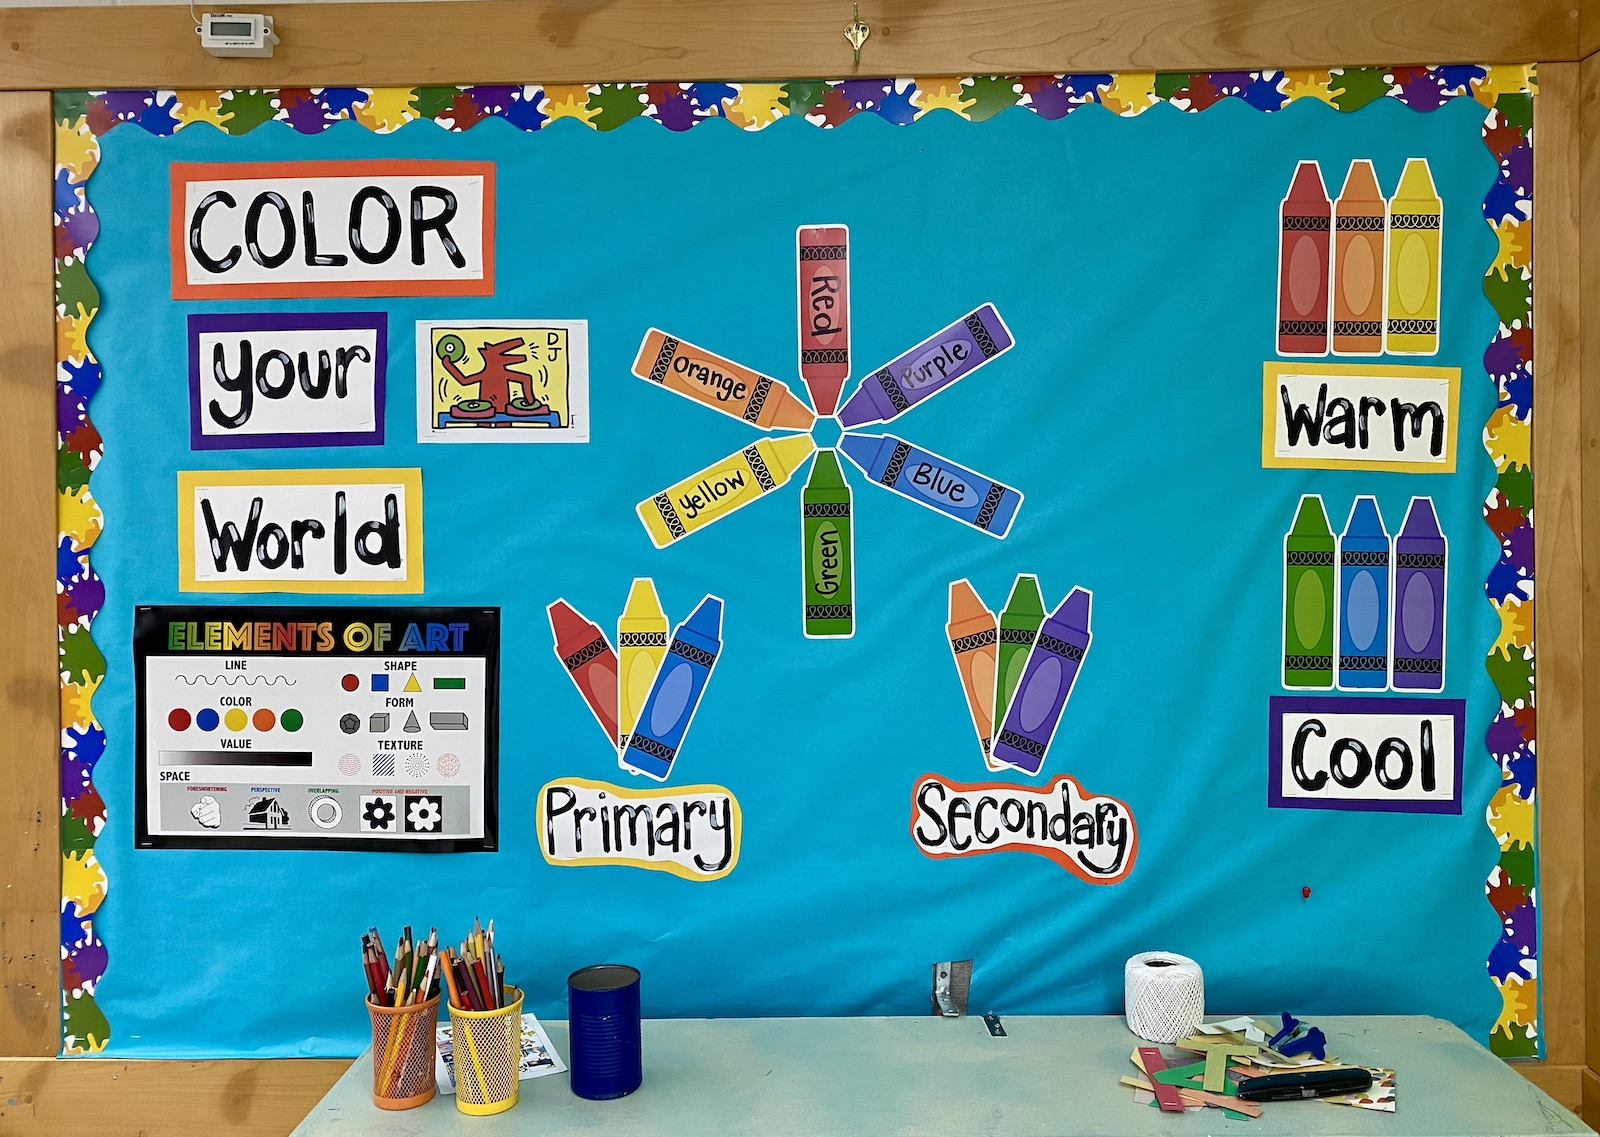 COLOR
your
World
DJ
ELEMENTS OF ART
LINE
SHAPE
COLOR
FORM
VALUE
TEXTURE
SPACE
FORESHORTENING
PERSPECTIVE
OVERLAPPING
POSITIVE AND NEGATIVE
Red
Orange
Purple
Yellow
Blue
Green
Primary
Secondary
Warm
Cool